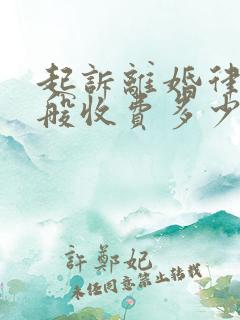 起訴離婚律
般收費多少
許鄭妃
未经同意禁止转载